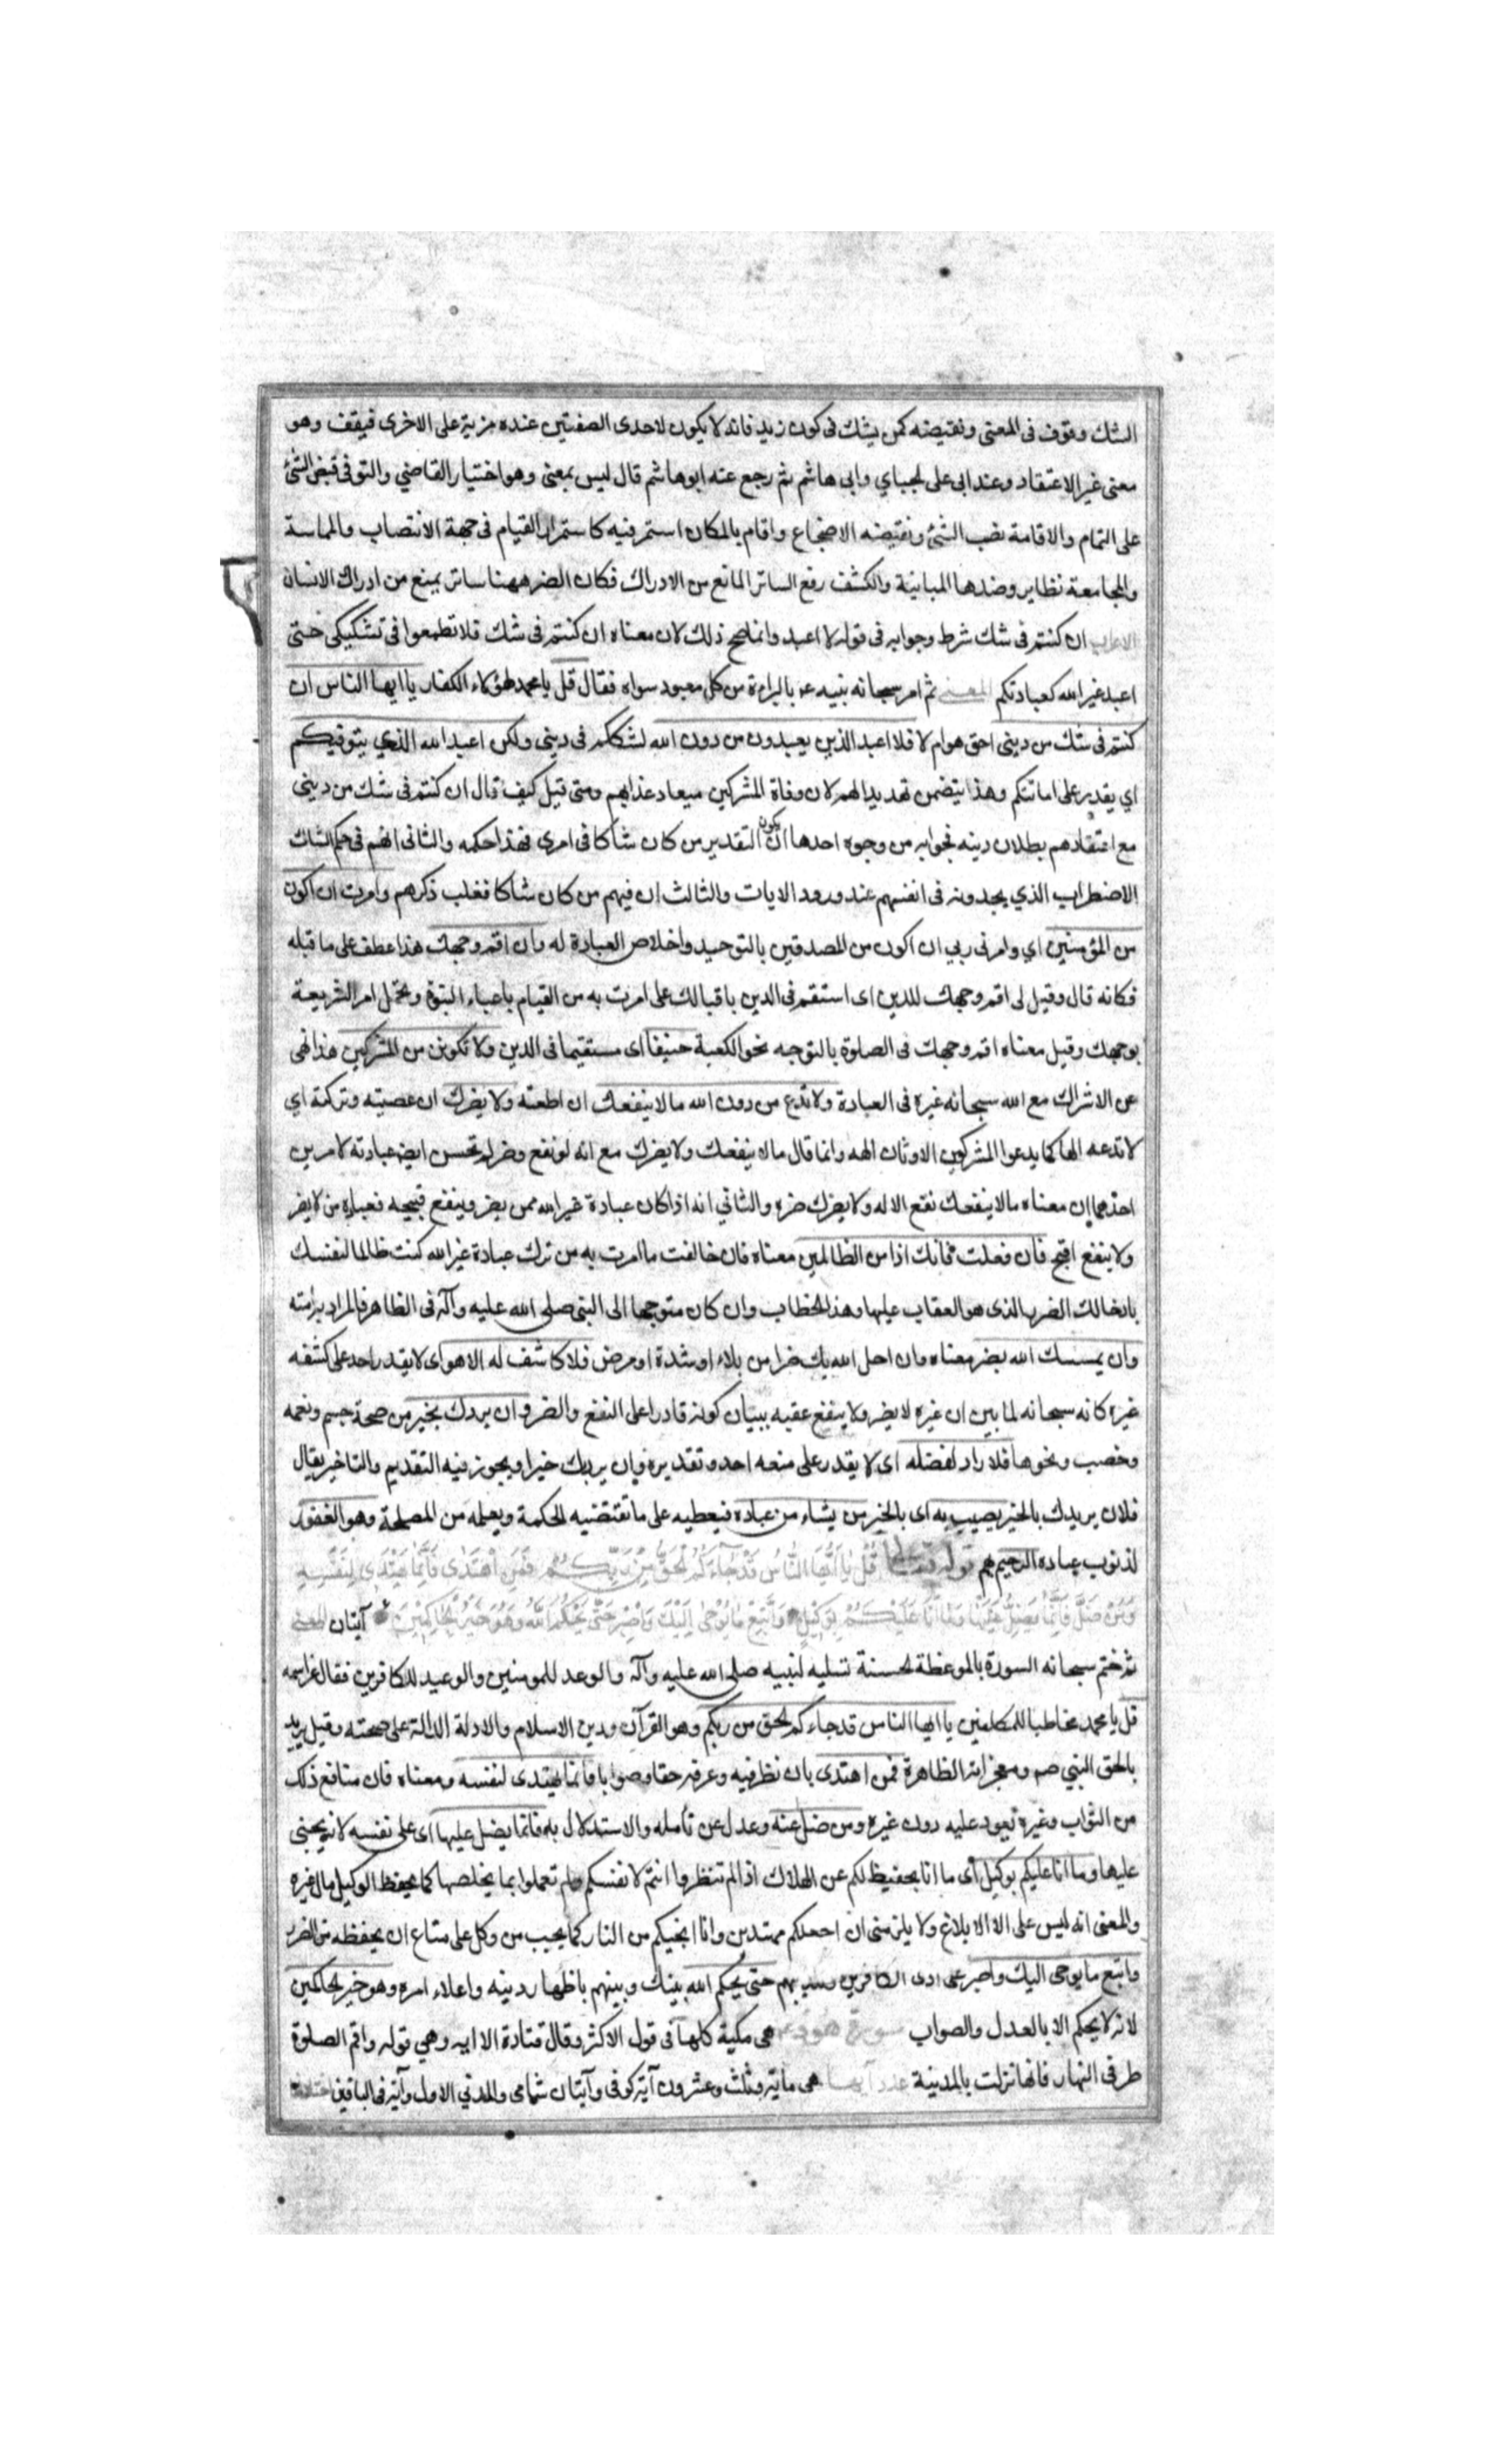 الشك وقوف فى المعنى ونقيضه كمن يشك فى كون زيد فانه لا يكون لاحدى الصفتين عنده مزية على الاخرى فيقف وهو
معنى غير الاعتقاد وعند ابى على الجباي وابى هاشم ثم رجع عنه ابوهاشم قال ليس بمعنى وهو اختيار القاضي والتوفى قبض الشئ
على التمام والاقامة نصب الشئ ونقيضه الاضجاع واقام بالمكان استمر فيه كاستمرار القيام فى جهة الانتصاب والمماسة
والمجامعة نظاير وضدها المباينة والكشف رفع الساتر المانع من الادراك فكان الضر ههنا ساتر يمنع من ادراك الانسان
الاعراب ان كنتم فى شك شرط وجوابه فى قوله لا اعبد وانما صح ذلك لان معناه ان كنتم فى شك فلا تطمعوا فى تشكيكى حتى
اعبد غير الله كعبادتكم المعنى ثم امر سبحانه نبيه عم بالبراءة من كل معبود سواه فقال قل يا محمد لهؤلاء الكفار يا ايها الناس ان
كنتم فى شك من دينى احق هو ام لا فلا اعبد الذين يعبدون من دون الله لشككم فى دينى ولكن اعبد الله الذي يتوفيكم
اي يقدر على اماتتكم وهذا يتضمن تهديدا لهم لان وفاة المشركين ميعاد عذابهم ومتى قيل كيف قال ان كنتم فى شك من دينى
مع اعتقادهم بطلان دينه فجوابه من وجوه احدها ان يكون التقدير من كان شاكا فى امرى فهذا حكمه والثانى انهم فى حكم الشاك
الاضطراب الذي يجدونه فى انفسهم عند ورود الايات والثالث ان فيهم من كان شاكا فغلب ذكرهم وامرت ان اكون
من المؤمنين اي وامرنى ربي ان اكون من المصدقين بالتوحيد واخلاص العبادة له وان اقم وجهك هذا عطف على ما قبله
فكانه قال وقيل لى اقم وجهك للدين اى استقم فى الدين باقبالك على امرت به من القيام باعباء النبوة وتحمل امر الشريعة
بوجهك وقيل معناه اقم وجهك فى الصلوة بالتوجه نحو الكعبة حنيفا اى مستقيما فى الدين ولا تكونن من المشركين هذا نهى
عن الاشراك مع الله سبحانه غيره فى العبادة ولا تدع من دون الله ما لا ينفعك ان اطعته ولا يضرك ان عصيته وتركته اي
لا تدعه الها كما يدعوا المشركين الاوثان الهه وانما قال ما لا ينفعك ولا يضرك مع انه لو نفع وضر لم تحسن ايض عبادته لامرين
احدهما ان معناه ما لا ينفعك نفع الاله ولا يضرك ضره والثاني انه اذا كان عبادة غير الله ممن يضر وينفع قبيحه فعبادة من لا يضر
ولا ينفع اقبح فان فعلت فانك اذا من الظالمين معناه فان خالفت ما امرت به من ترك عبادة غير الله كنت ظالما لنفسك
بادخالك الضر الذى هو العقاب عليها وهذا الخطاب وان كان متوجها الى النبى صلى الله عليه وآله فى الظاهر فالمراد به امته
وان يمسسك الله بضر معناه وان احل الله بك ضرا من بلاء او شدة او مرض فلا كاشف له الا هو اى لا يقدر احد على كشفه
غيره كانه سبحانه لما بين ان غيره لا يضر ولا ينفع عقبه ببيان كونه قادرا على النفع والضر وان يردك بخير من صحة جسم ونعمه
وخصب ونحوها فلا راد لفضله اى لا يقدر على منعه احد وتقديره وان يرد بك خيرا ويجوز فيه التقديم والتاخير يقال
فلان يريدك بالخير يصيب به اى بالخير من يشاء من عباده فيعطيه على ما تقتضيه الحكمة ويعلمه من المصلحة وهو الغفور
لذنوب عباده الرحيم بهم قوله تعالى قُلْ يَا أَيُّهَا النَّاسُ قَدْ جَاءَكُمُ الْحَقُّ مِنْ رَبِّكُمْ فَمَنِ اهْتَدَى فَإِنَّمَا يَهْتَدِي لِنَفْسِهِ
وَمَنْ ضَلَّ فَإِنَّمَا يَضِلُّ عَلَيْهَا وَمَا أَنَا عَلَيْكُمْ بِوَكِيلٍ وَاتَّبِعْ مَا يُوحَى إِلَيْكَ وَاصْبِرْ حَتَّى يَحْكُمَ اللَّهُ وَهُوَ خَيْرُ الْحَاكِمِينَ آيتان المعنى
ثم ختم سبحانه السورة بالموعظة الحسنة تسلية لنبيه صلى الله عليه وآله والوعد للمومنين والوعيد للكافرين فقال عز اسمه
قل يا محمد مخاطبا للمكلفين يا ايها الناس قد جاءكم الحق من ربكم وهو القرآن ودين الاسلام والادلة الدالة على صحته وقيل يريد
بالحق النبي صم ومعجزاته الظاهرة فمن اهتدى بان نظر فيه وعرفه حقا وصوابا فانما يهتدى لنفسه ومعناه فان منافع ذلك
من الثواب وغيره تعود عليه دون غيره ومن ضل عنه وعدل عن تأمله والاستدلال به فانما يضل عليها اى على نفسه لانه يجنى
عليها وما انا عليكم بوكيل اى ما انا بحفيظ لكم عن الهلاك اذا لم تنظروا انتم لانفسكم ولم تعملوا بما يخلصها كما يحفظ الوكيل مال غيره
والمعنى انه ليس على الا الابلاغ ولا يلزمنى ان اجعلكم مهتدين وانا انجيكم من النار كما يجب من وكل على متاع ان يحفظه من الضرر
واتبع ما يوحى اليك واصبر على اذى الكافرين وتكذيبهم حتى يحكم الله بينك وبينهم باظهار دينه واعلاء امره وهو خير الحاكمين
لانه لا يحكم الا بالعدل والصواب سورة هود هى مكية كلها فى قول الاكثر وقال قتادة الا ايه وهي قوله واقم الصلوة
طرفى النهار فانها نزلت بالمدينة عدد آيها هى مائة وثلث وعشرون آية كوفى وآيتان شامى والمدني الاول وآية فى الباقين